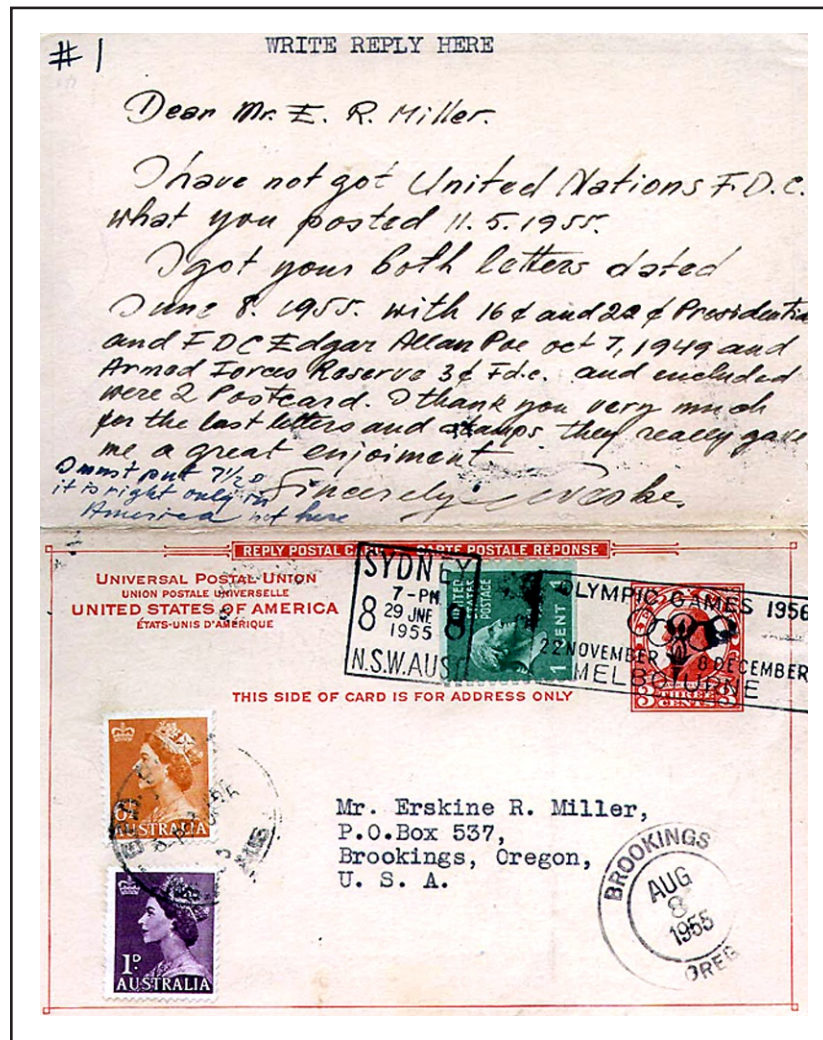 # 1
WRITE REPLY HERE
Dear Mr. E. R. Miller.
I have not got United Nations F.D.C.
what you posted 11.5.1955.
I got your both letters dated
June 8. 1955. with 16 ¢ and 22 ¢ Presidentia
and FDC Edgar Allan Poe oct 7, 1949 and
Armed Forces Reserve 3¢ Fd.c. and included
were 2 Postcard. I thank you very much
for the last letters and stamps. they really gave
me a great enjoiment
Sincerely
I must put 7½ D
it is right only in
America not here
REPLY POSTAL CARTE POSTALE RÉPONSE
UNIVERSAL POSTAL UNION
UNION POSTALE UNIVERSELLE
UNITED STATES OF AMERICA
ÉTATS-UNIS D'AMÉRIQUE
SYDNEY
7-PM
8 29 JNE 8
1955
N.S.W. AUST
UNITED STATES POSTAGE
1 CENT 1
OLYMPIC GAMES 1956
22 NOVEMBER 8 DECEMBER
MELBOURNE
3 THREE CENTS 3
THIS SIDE OF CARD IS FOR ADDRESS ONLY
AUSTRALIA
1D.
AUSTRALIA
Mr. Erskine R. Miller,
P.O.Box 537,
Brookings, Oregon,
U. S. A.
BROOKINGS
AUG
8
1955
OREG